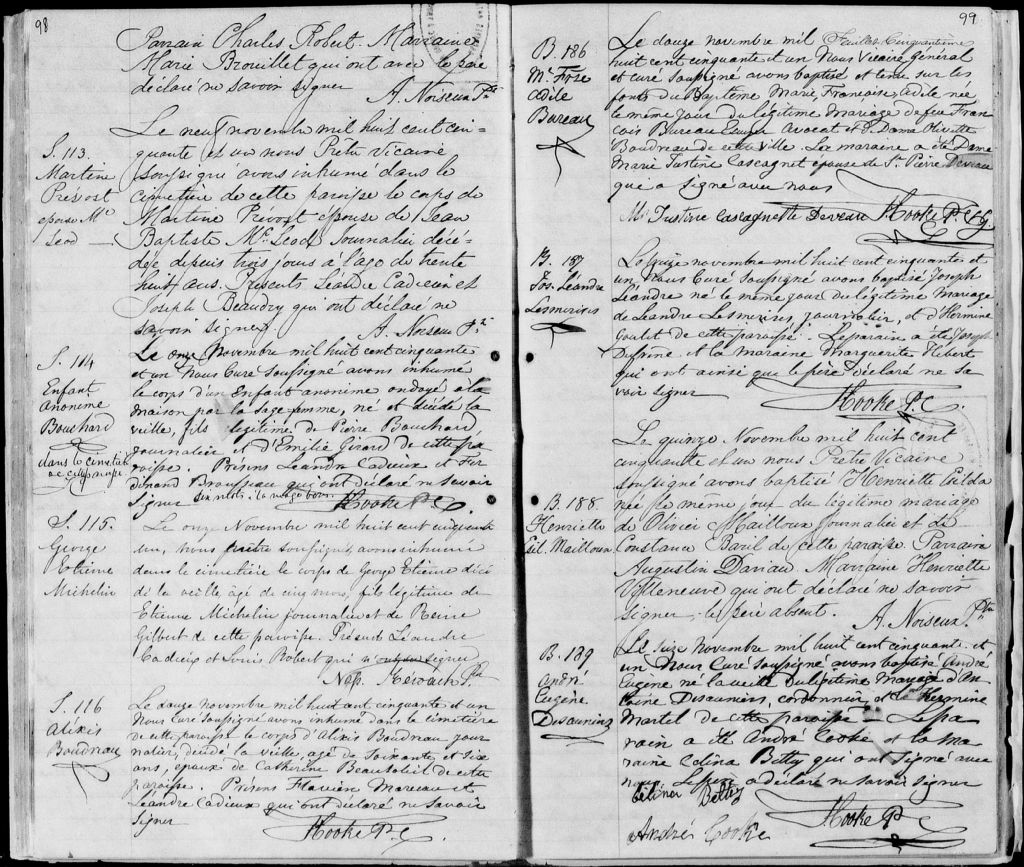 98
Parrain Charles Robert. Marraine
Marie Brouillet qui ont avec le père
déclaré ne savoir signer
A. Noiseux Ptr
S. 113.
Martine
Prévost
epouse Mc
Leod
Le neuf novembre mil huit cent cin-
quante et un nous Prêtre Vicaire
soussigné avons inhumé dans le
cimetière de cette paroisse le corps de
Martine Prevost epouse de Jean
Baptiste Mc Leod Journalier décé-
dée depuis trois jours a l'age de trente
huit ans. Présents Léandre Cadieux et
Joseph Beaudry qui ont déclaré ne
savoir signer
A. Noiseux Ptr
S. 114
Enfant
Anonime
Bouchard
dans le cimetière
de cette paroisse
Le onze Novembre mil huit cent cinquante
et un Nous Curé soussigné avons inhumé
le corps d'un Enfant anonime ondoyé a la
maison par la Sage femme, né et décédé la
veille, fils légitime de Pierre Bouchard
journalier et d'Emilie Girard de cette pa
roisse. Présens Léandre Cadieux et Fer
dinand Brousseau qui ont déclaré ne savoir
signer
Six mots à la marge bons
Hooke P. C.
S. 115.
George
Etienne
Michelin
Le onze Novembre mil huit cent cinquante
un, nous Prêtre soussigné avons inhumé
dans le cimetière le corps de George Etienne décé
dé la veille, agé de cinq mois, fils légitime de
Etienne Michelin journalier et de Reine
Gilbert de cette paroisse. Présents Léandre
Cadieux et Louis Robert qui n'ont su signer
Nap. Kéroack Ptr
S. 116
Aléxis
Boudreau
Le douze novembre mil huit cent cinquante et un
Nous Curé soussigné avons inhumé dans le cimetière
de cette paroisse le corps d'Aléxis Boudreau jour
nalier, décédé la veille, agé de soixante et dix
ans, epoux de Catherine Beausoleil de cette
paroisse. Présens Flavien Mareau et
Léandre Cadieux qui ont déclaré ne savoir
signer
Hooke P. C.
99
B. 186
Me. Fose
Adile
Bureau
Le douze novembre mil
Feuillet Cinquantième
huit cent cinquante et un Nous Vicaire général
et curé soussigné avons baptisé et tenu sur les
fonts du Baptême Marie, Françoise Adile née
le même jour du légitime mariage de feu Fran
çois Bureau Ecuyer Avocat et de Dame Olivette
Boudreau de cette ville. La maraine a été Dame
Marie Justine Cascagnet epouse de Sr. Pierre Deveau
qui a signé avec nous
Me Justine Cascagnette Deveau
Hooke P. C. V.G.
B. 187
Jos. Léandre
Lesmerises
Le quinze novembre mil huit cent cinquante et
un, Nous Curé soussigné avons baptisé Joseph
Léandre né le même jour du légitime mariage
de Léandre Lesmerises, journalier, et d'Hermine
Goulet de cette paroisse. Le parain a été Joseph
Dufrine et la maraine Marguerite Hébert
qui ont ainsi que le père déclaré ne sa
voir signer
Hooke P. C.
B. 188.
Henriette
Exil. Mailloux
Le quinze Novembre mil huit cent
cinquante et un nous Prêtre Vicaire
soussigné avons baptisé Henriette Exilda
née le même jour du légitime mariage
de Olivier Mailloux Journalier et de
Constance Baril de cette paroisse. Parrain
Augustin Daviau Marraine Henriette
Villeneuve qui ont déclaré ne savoir
signer. le père absent.
A. Noiseux Ptr
B. 189
André
Eugène
Désauniers
Le seize novembre mil huit cent cinquante et
un Nous Curé soussigné avons baptisé André
Eugène né la veille du légitime mariage d'An
toine Désauniers, cordonnier, et de Hermine
Martel de cette paroisse Le pa
rain a été André Cooke et la ma
raine Célina Betty qui ont signé avec
nous. Le père a déclaré ne savoir signer
Célina Bettez
André Cooke
Hooke P. C.